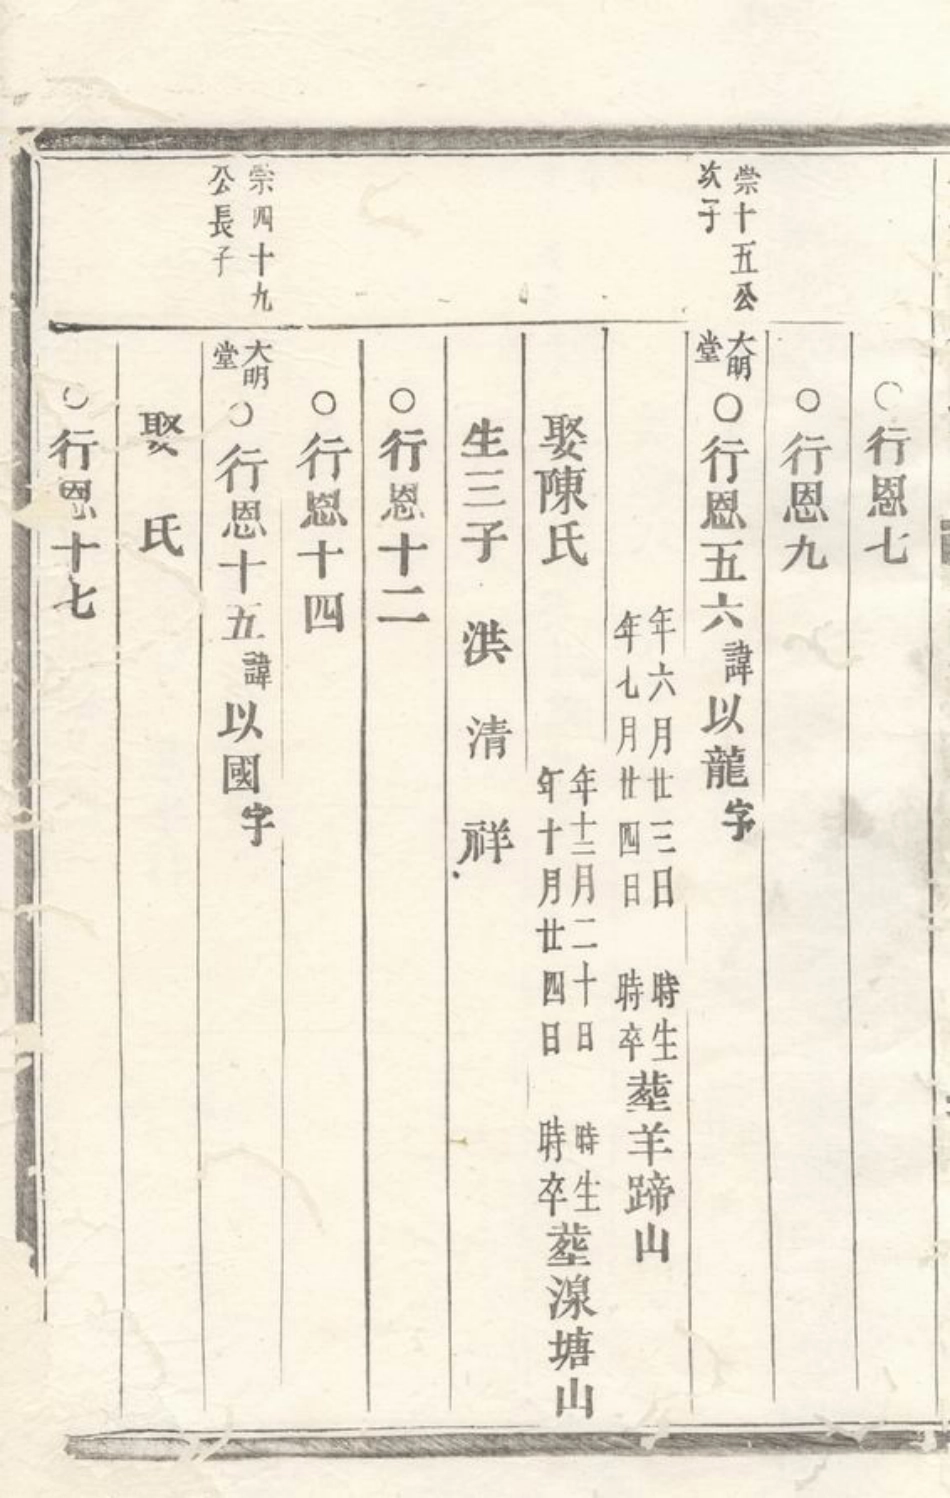 ○行恩七
○行恩九
崇十五公
次子
大明
堂
○行恩五六諱以龍字
年六月廿三日 時生
年七月廿四日 時卒
塟羊蹄山
娶陳氏
年十二月二十日 時生
年十月廿四日 時卒
塟湶塘山
生三子 洪 清 祥
○行恩十二
○行恩十四
崇四十九
公長子
大明
堂
○行恩十五諱以國字
娶 氏
○行恩十七